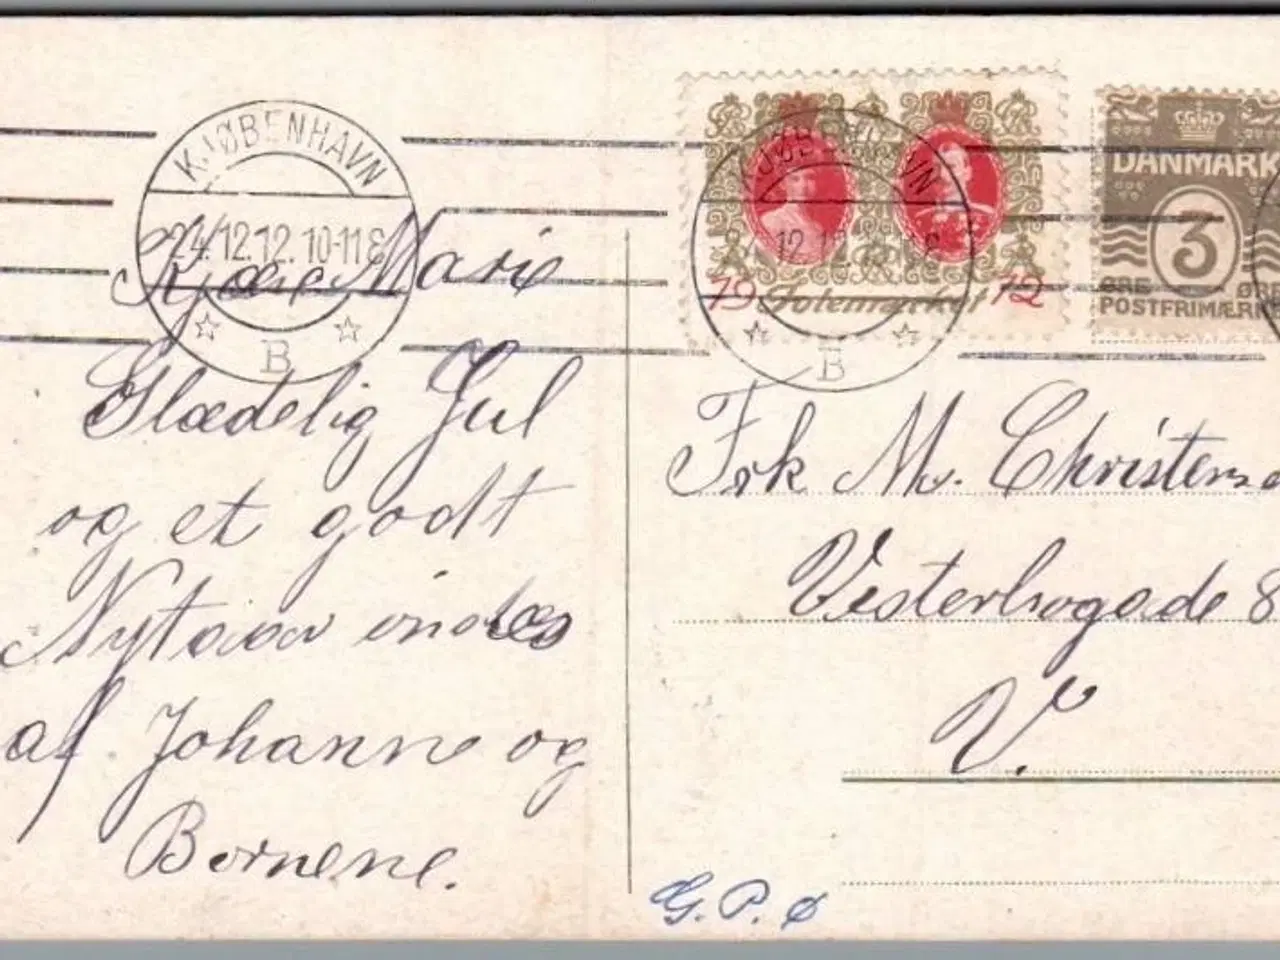 KJØBENHAVN
24.12.12. 10-11E
B
Kjære Marie
Glædelig Jul
og et godt
Nytaar ønskes
af Johanne og
Børnene.
KJØBENHAVN
B
19 Julemærket 12
DANMARK
3
ØRE ØRE
POSTFRIMÆRKE
Frk M. Christens
Vesterbrogade 8
V.
G. P. Ø